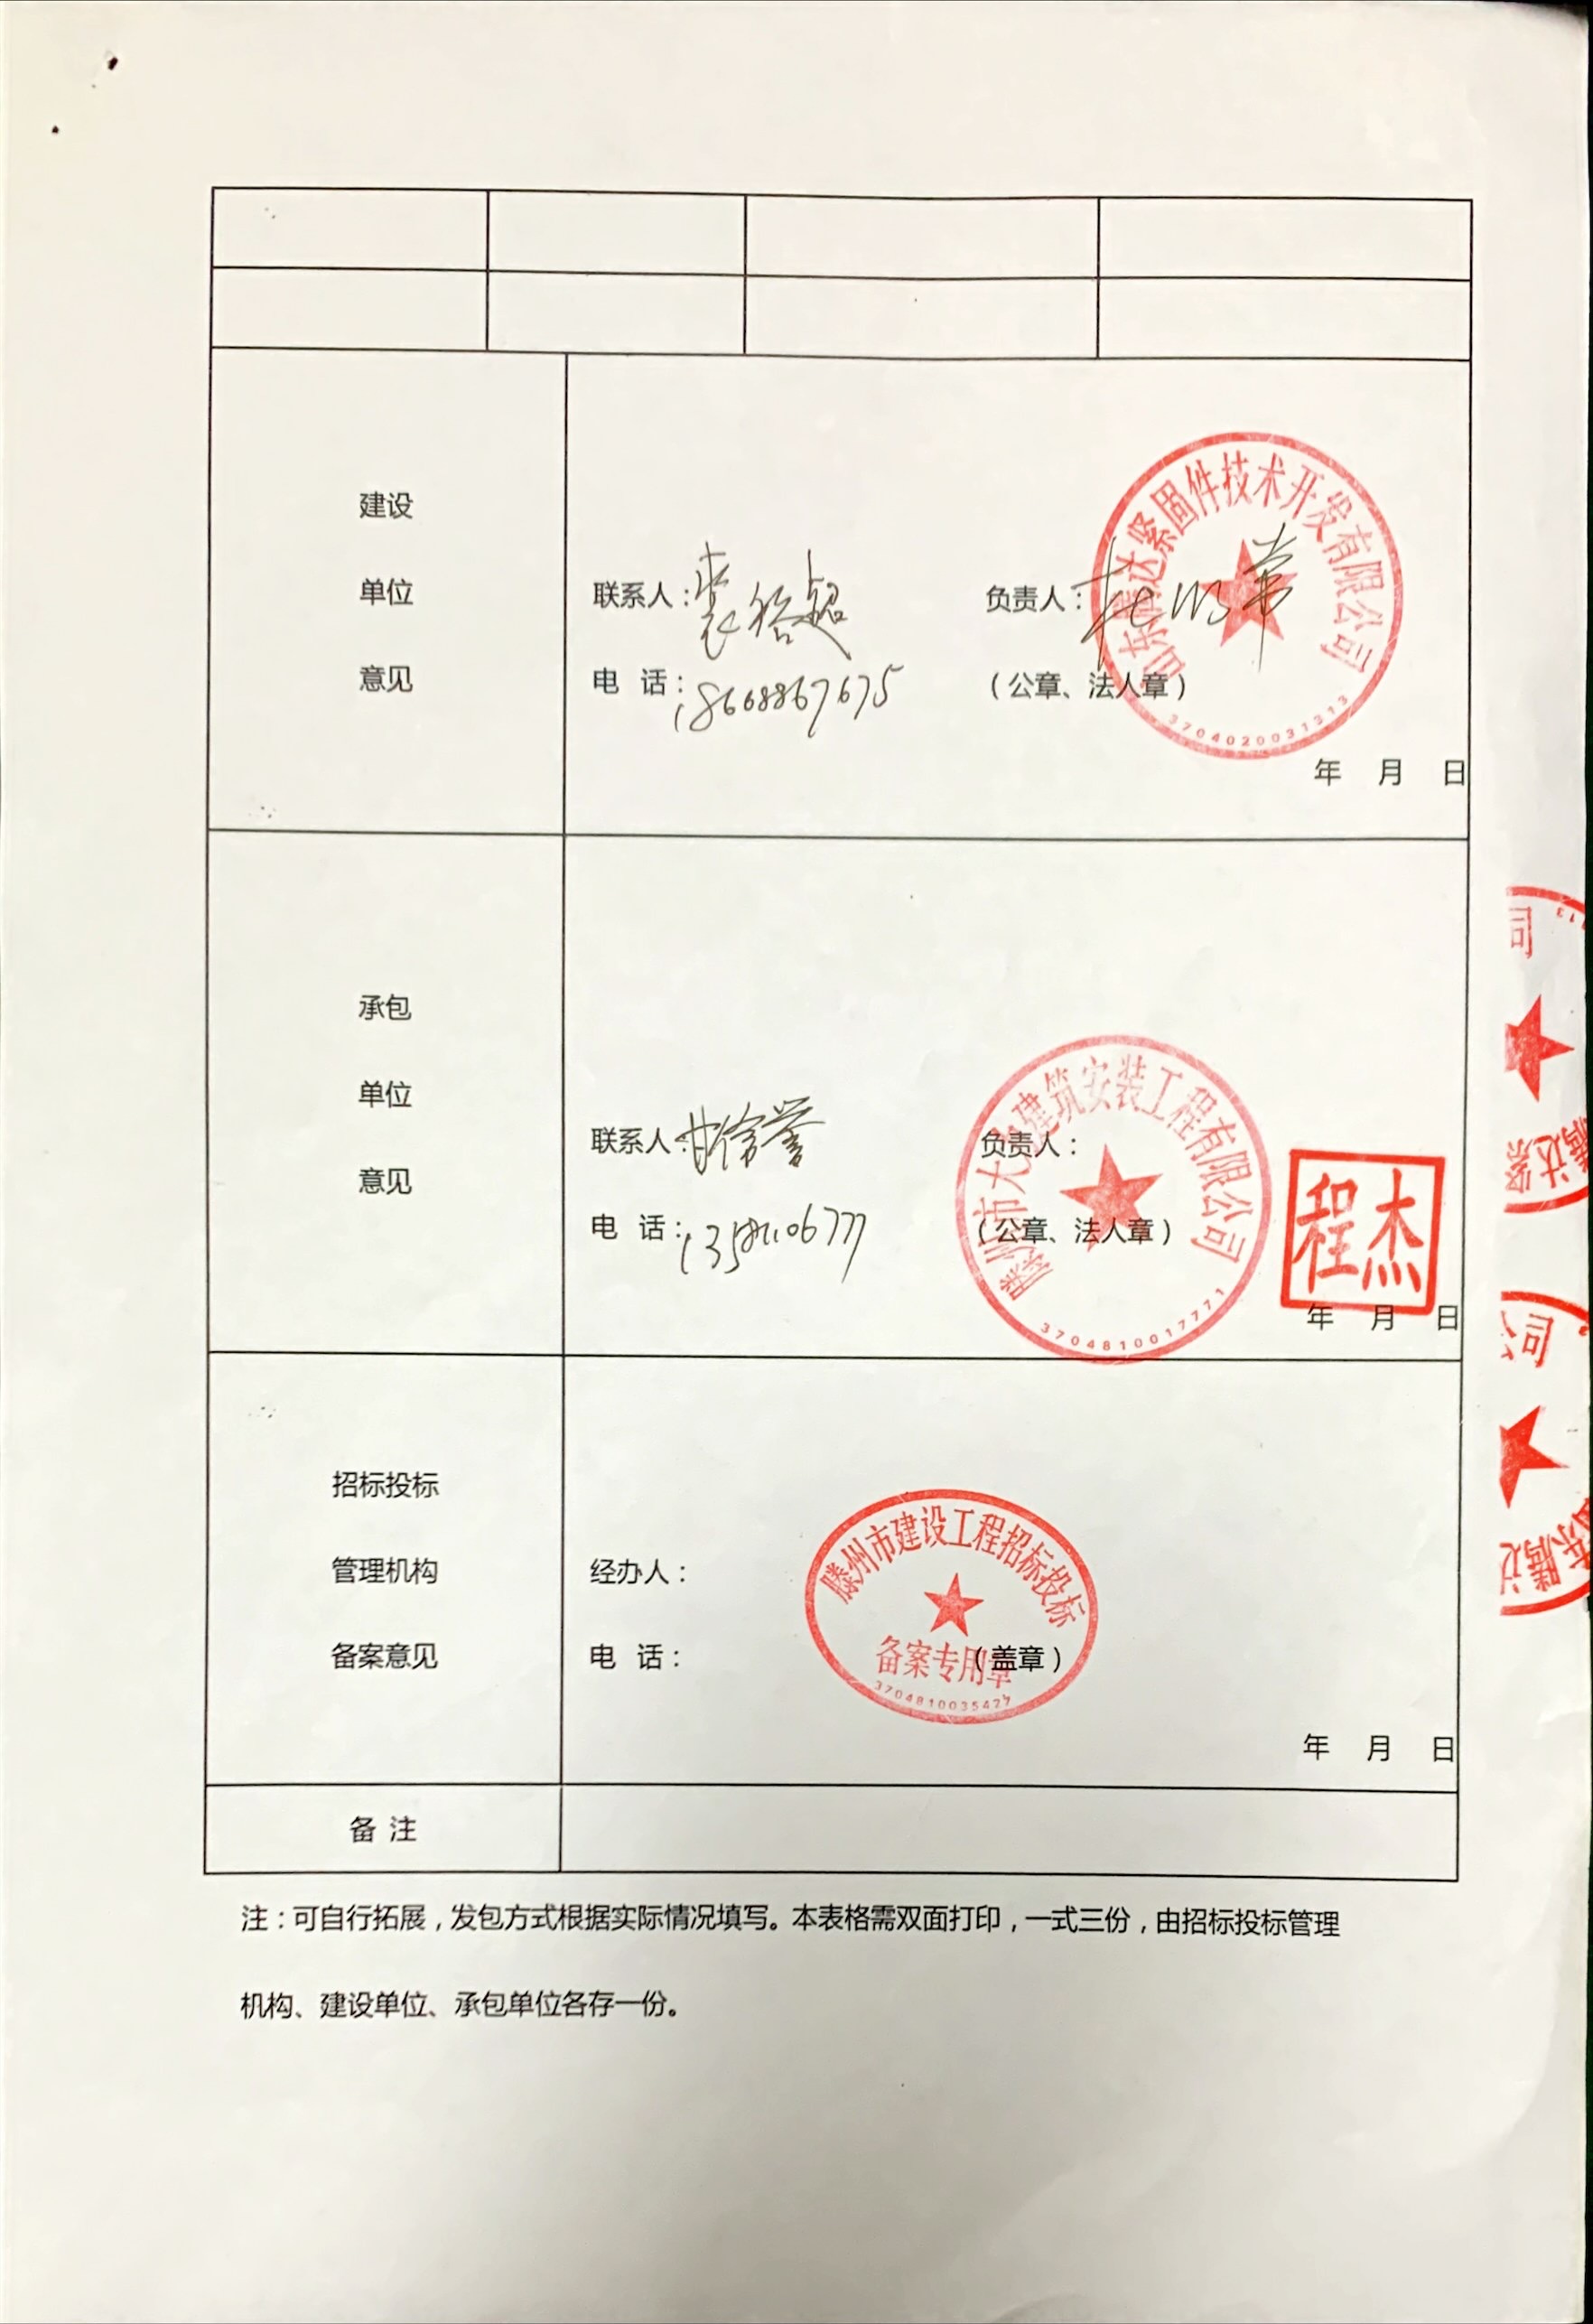 建设
单位
意见
联系人：裴裕超
负责人：
电 话：18668867675
（公章、法人章）
山东腾达紧固件技术开发有限公司
3704020031313
年 月 日
承包
单位
意见
联系人
负责人：
电 话：
（公章、法人章）
建筑安装工程有限公司
3704810017771
程杰
年 月 日
招标投标
管理机构
备案意见
经办人：
电 话：
（盖章）
滕州市建设工程招标投标
备案专用章
3704810035427
年 月 日
备 注
注：可自行拓展，发包方式根据实际情况填写。本表格需双面打印，一式三份，由招标投标管理
机构、建设单位、承包单位各存一份。
司
腾达紧
公司
东腾达